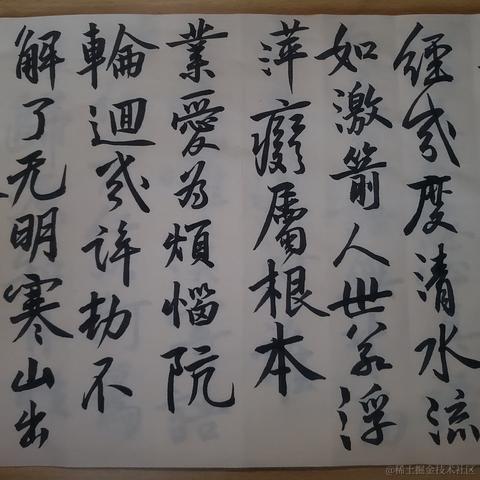 經幾度清水流
如激箭人世若浮
萍癡屬根本
業愛為煩惱阬
輪迴幾許劫不
解了无明寒山出
@稀土掘金技术社区